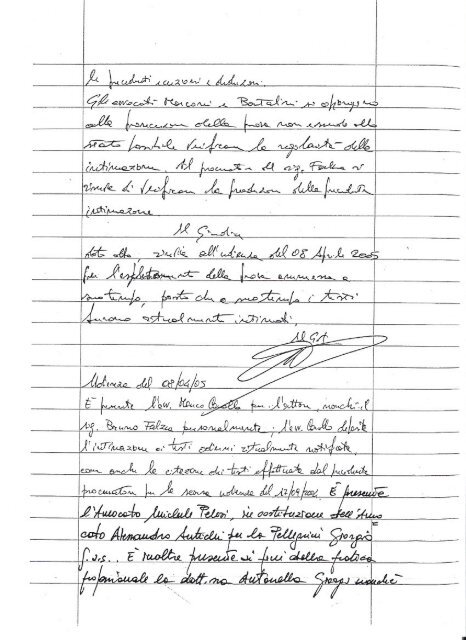 le precedenti eccezioni e deduzioni.
Gli avvocati Marconi e Bortolini si oppongono
alla prosecuzione della prova non essendo allo
stato possibile verificare la regolarità delle
intimazioni. Il procuratore del sig. Falzea si
di verificare la produzione della precedente
intimazione
Il Giudice
dato atto, rinvia all'udienza del 08 Aprile 2005
per l'espletamento della prova ammessa a
suo tempo, posto che a suo tempo i testi
furono ritualmente intimati.
Il G.I.
Udienza del 08/04/05
È presente l'avv. Marco per l'attore, nonché il
sig. Bruno Falzea personalmente; l'avv. deposita
l'intimazione ai testi odierni ritualmente notificata
con anche la citazione dei testi effettuata dal precedente
procuratore per la scorsa udienza del È presente
l'Avvocato Michele Pelosi, in sostituzione dell'Avvo
cato Alessandro Antichi per la Pellegrini Giorgio
s.a.s.. È inoltre presente ai fini della pratica
professionale la dott.ssa Antonella Giorgi nonché